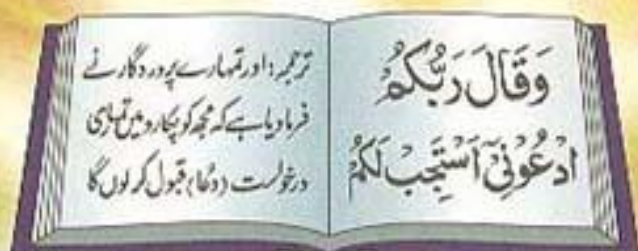 وَقَالَ رَبُّكُمُ
ادْعُوْنِیْۤ اَسْتَجِبْ لَکُمْ
ترجمہ: اور تمہارے پروردگار نے
فرما دیا ہے کہ مجھ کو پکارو میں تمہاری
درخواست (دعا) قبول کر لوں گا